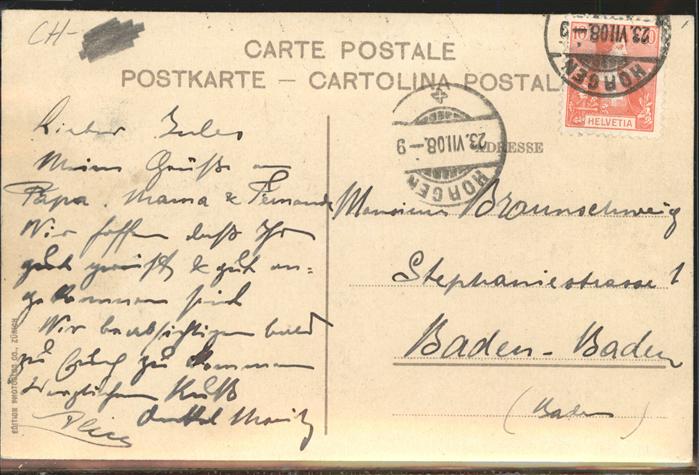 CH-
CARTE POSTALE
POSTKARTE — CARTOLINA POSTALE
10
HELVETIA
HORGEN
23.VII.08.-9
HORGEN
23.VII.08.-9
ADRESSE
Lieber Jules
Meine Grüße an
Papa, Mama & Fernande
Wir hoffen daß Ihr
gut gereist & gut an=
gekommen seid
Wir beabsichtigen bald
zu Euch zu kommen
Herzlichen Kuß
Onkel Moritz
Monsieur Braunschweig
Stephaniestrasse 1
Baden-Baden
(Baden)
EDITION PHOTOGLOB CO. ZÜRICH